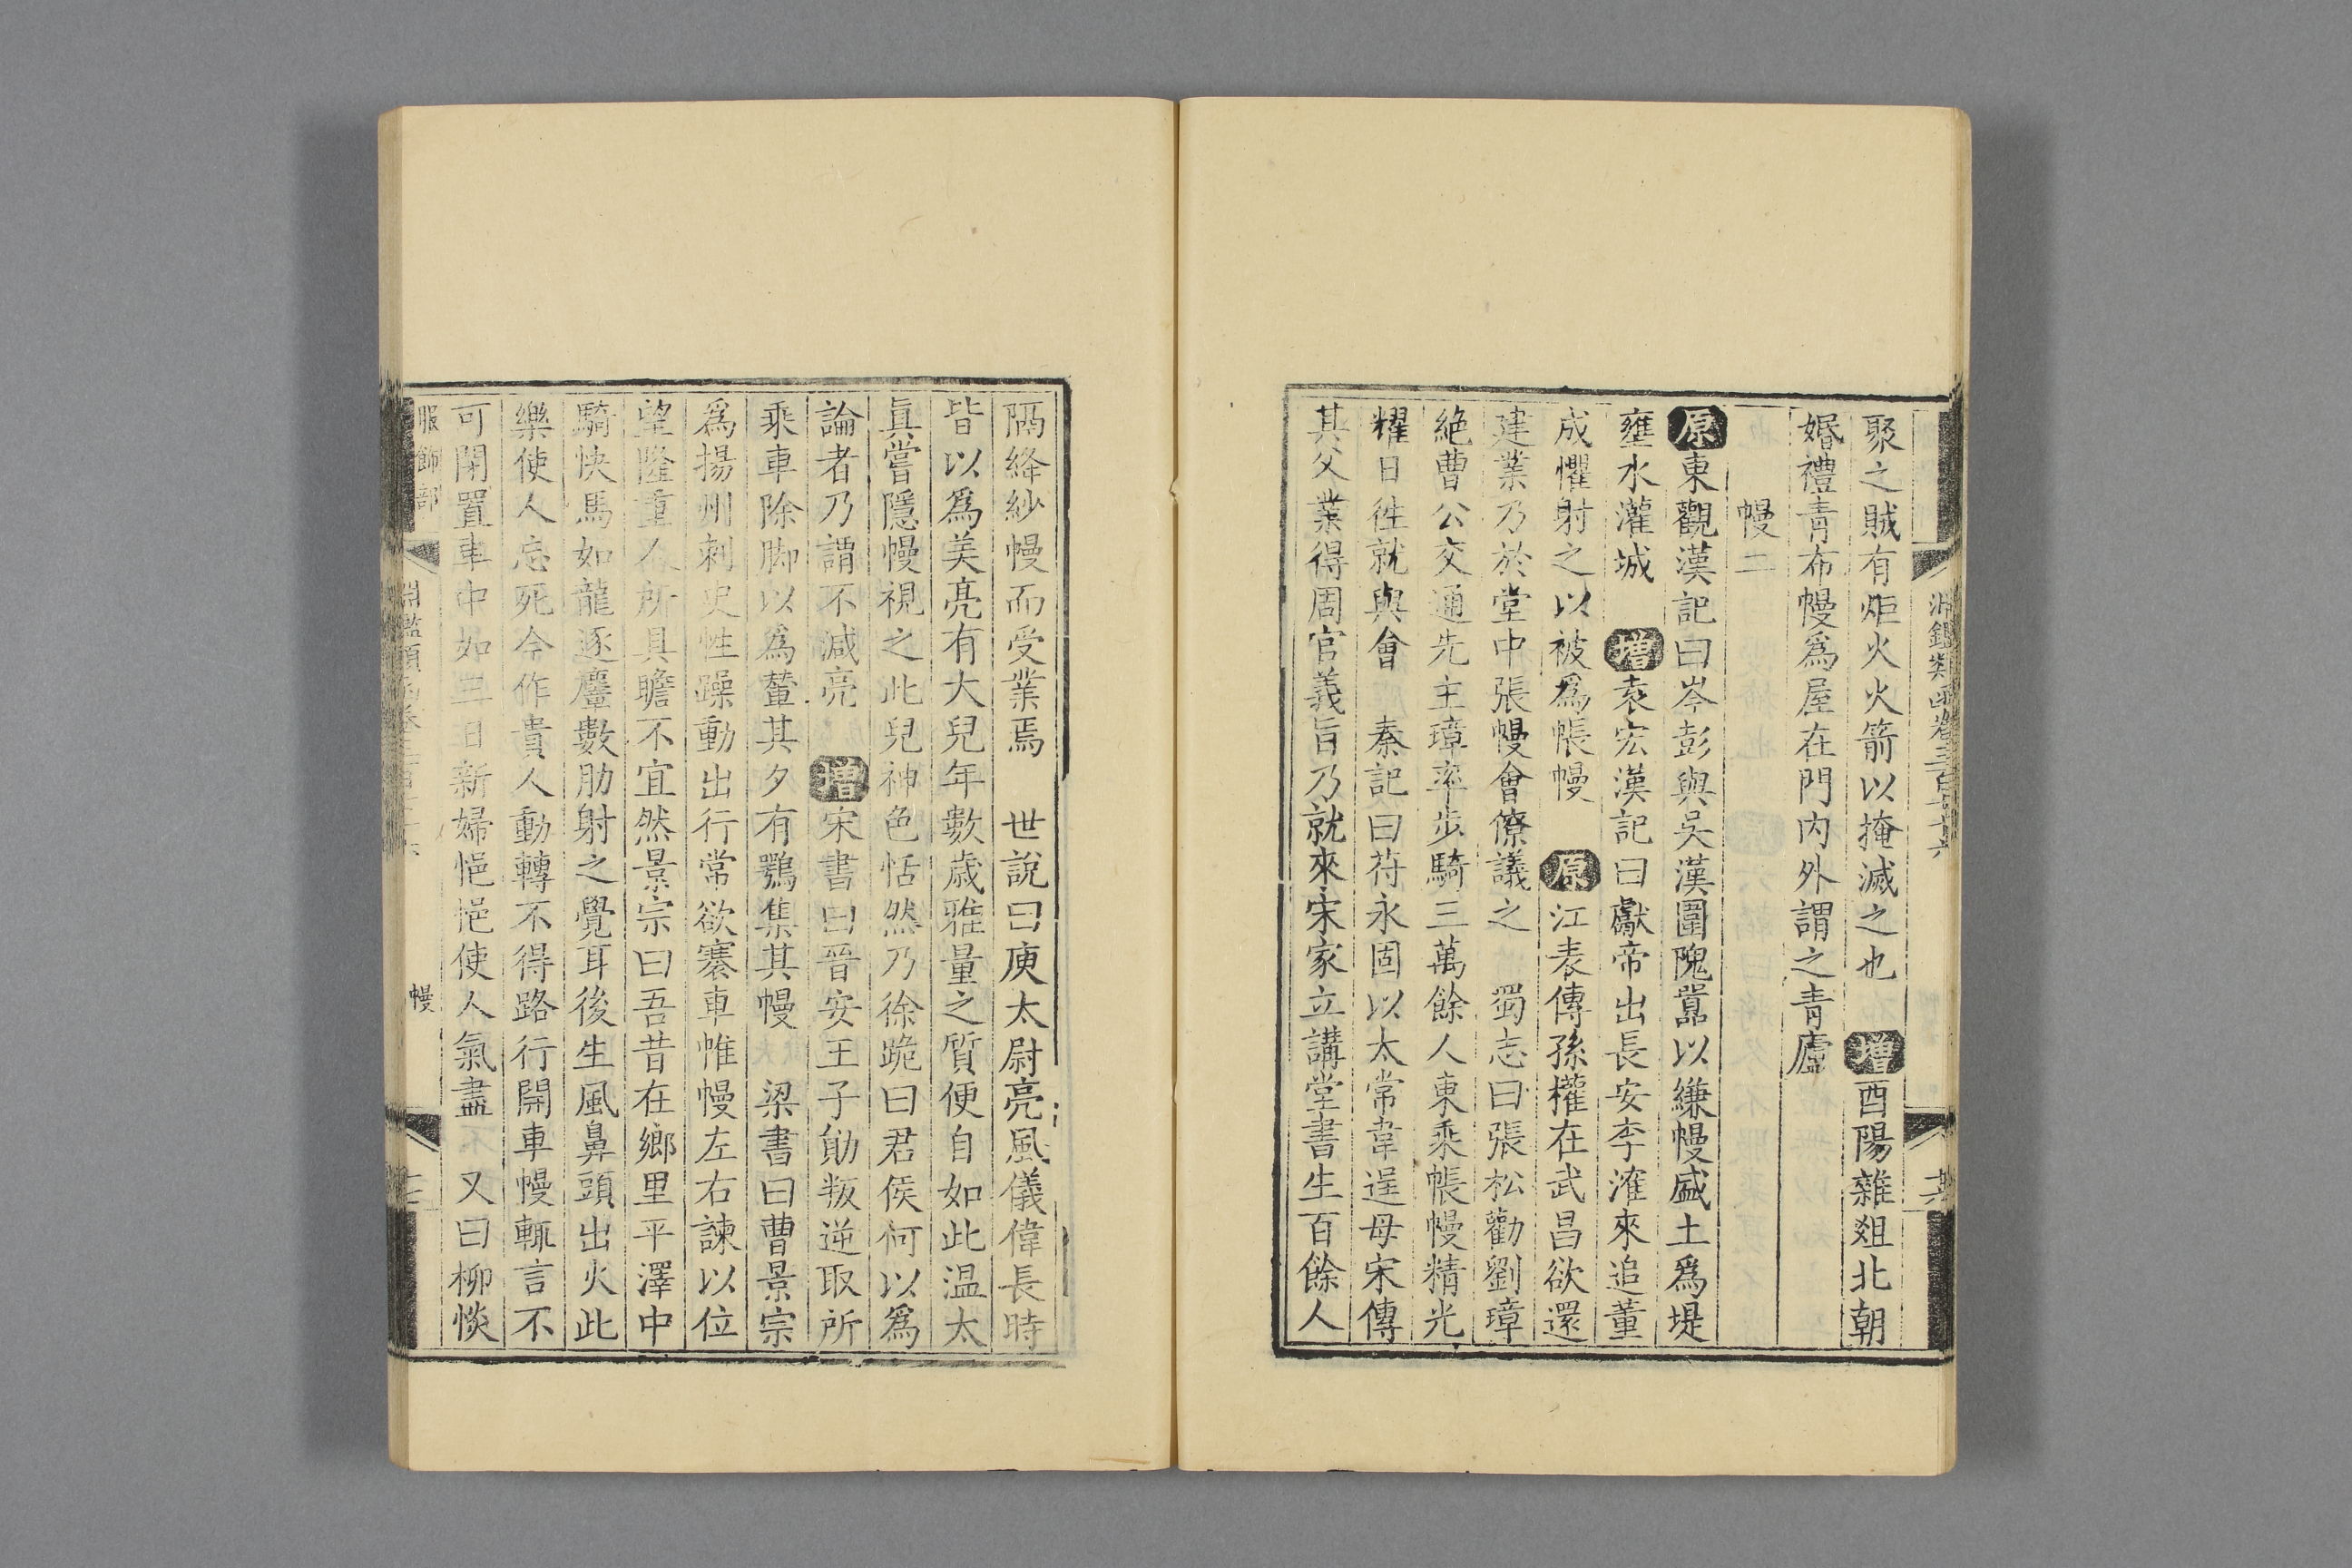 聚之賊有炬火火箭以掩滅之也 增酉陽雜爼北朝
婚禮青布幔爲屋在門内外謂之青廬
幔二
原東觀漢記曰岑彭與吳漢圍隗囂以縑幔盛土爲堤
壅水灌城 增袁宏漢記曰獻帝出長安李傕來追董
成懼射之以被爲帳幔 原江表傳孫權在武昌欲還
建業乃於堂中張幔會僚議之 蜀志曰張松勸劉璋
絶曹公交通先主璋率步騎三萬餘人東乘帳幔精光
耀日徃就與會 秦記曰苻永固以太常韋逞母宋傳
其父業得周官義旨乃就來宋家立講堂書生百餘人
隔絳紗幔而受業焉 世說曰庾太尉亮風儀偉長時
皆以爲美亮有大兒年數歲雅量之質便自如此温太
眞嘗隱幔視之此兒神色恬然乃徐跪曰君侯何以爲
論者乃謂不減亮 增宋書曰晉安王子勛叛逆取所
乘車除脚以爲輦其夕有鶚集其幔 梁書曰曹景宗
爲揚州刺史性躁動出行常欲褰車帷幔左右諫以位
望隆重人所具瞻不宜然景宗曰吾昔在鄉里平澤中
騎快馬如龍逐麞數肋射之覺耳後生風鼻頭出火此
樂使人忘死今作貴人動轉不得路行開車幔輒言不
可閉置車中如三日新婦悒悒使人氣盡 又曰柳惔
服飾部 幔